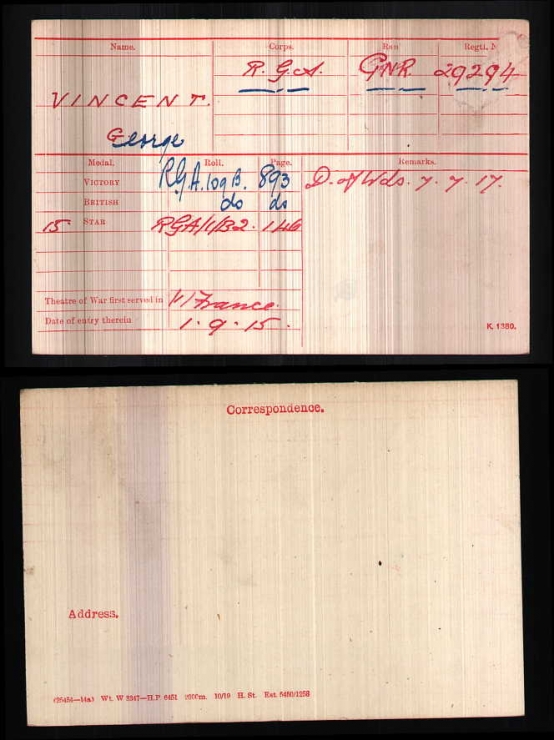 Name. Corps. Regtl. N
R.G.A. GNR 29294
VINCENT.
George
Medal. Roll. Page. Remarks.
VICTORY RGA.109B. 893 D. of Wds. 7. 7. 17.
BRITISH do do
15 STAR RGA/1/B2. 146
Theatre of War first served in France.
Date of entry therein 1. 9. 15.
K. 1380.
Correspondence.
Address.
Wt. W 10/19 H. St.